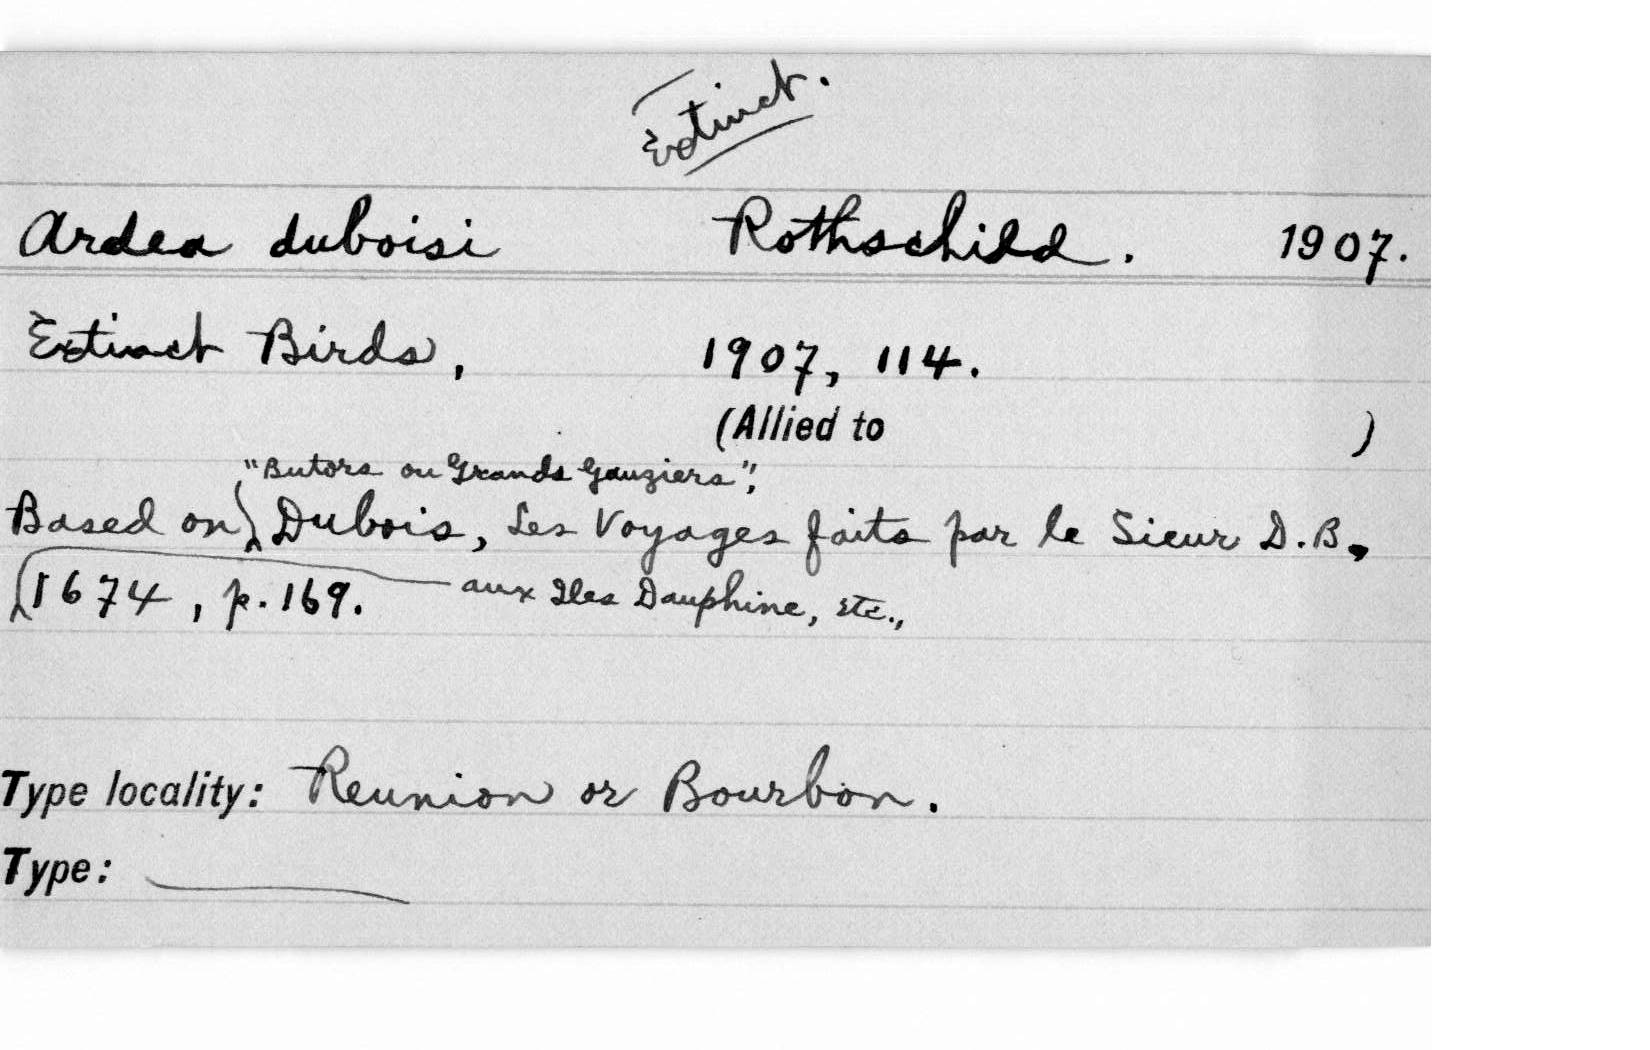 Extinct.
Ardea duboisi Rothschild. 1907.
Extinct Birds, 1907, 114.
(Allied to )
"Butors ou Grands Gauziers",
Based on Dubois, Les Voyages faits par le Sieur D.B.,
aux Iles Dauphine, etc.,
1674, p. 169.
Type locality: Reunion or Bourbon.
Type: